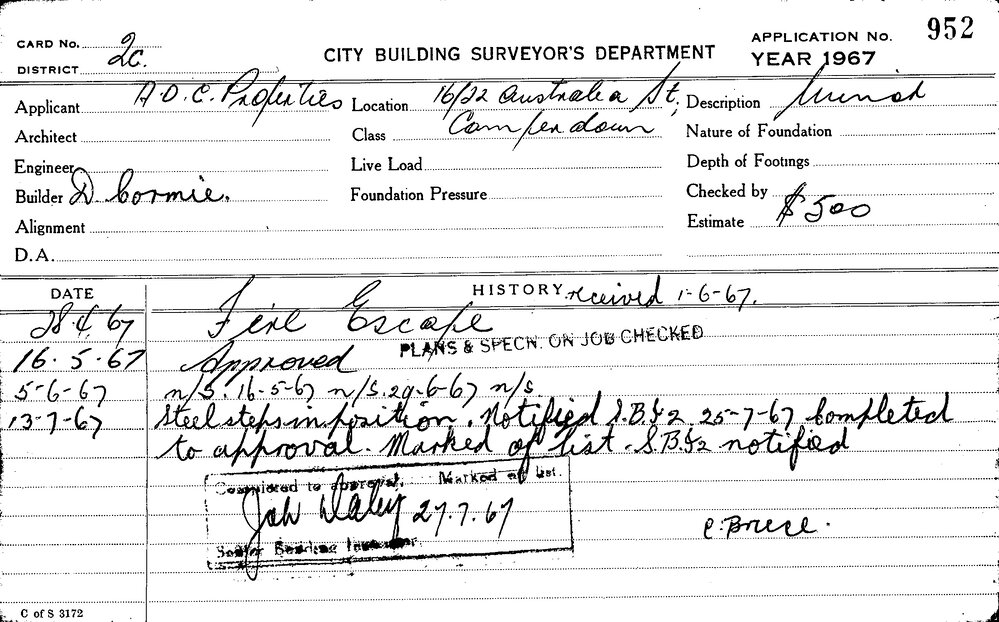 CARD No. 2c.
DISTRICT
CITY BUILDING SURVEYOR'S DEPARTMENT
APPLICATION No. 952
YEAR 1967
Applicant A.D.C. Properties
Location 16/22 Australia St,
Camperdown
Description
Architect
Class
Nature of Foundation
Engineer
Live Load
Depth of Footings
Builder D Cormie.
Foundation Pressure
Checked by
Alignment
Estimate $500
D.A.
DATE
HISTORY received 1-6-67.
28.4.67 Fire Escape
PLANS & SPECN. ON JOB CHECKED
16.5.67 Approved
5-6-67 n/S. 16-5-67 n/S. 29-6-67 n/S
13-7-67 Steel steps in position. Notified S.B.I2 25-7-67 Completed
to approval. Marked of list. S.B.I2 notified
Completed to approval. Marked of list.
27.7.67
Senior Building Inspector.
C of S 3172